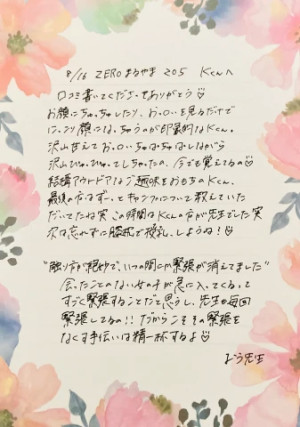 9/16 ZEROまるやま 205 Kくんへ
口コミ書いてくださってありがとう♡
お顔にちゅっちゅしたり、お○いを見るだけで
にっこり顔になっちゅうのが印象的なKくん。
沢山甘えてお○いちゅぱちゅぱしながら
沢山ぴゅっぴゅってしちゃったの、今でも覚えてるの♡
結構アウトドアなご趣味をおもちのKくん。
最後のなはずーっとキャンプについて教えていた
だいてたね笑 この時間はKくんの方が先生でした笑
次は忘れずに膝枕で授乳、しようね!♡
"触り方が穏やかで、いつの間にか緊張が消えてました"
会ったことのない女の子が急に入ってくるって
すごく緊張することだと思うし、先生も毎回
緊張してるの!!だからこそその緊張を
なくす手伝いは精一杯するよ♡
先生